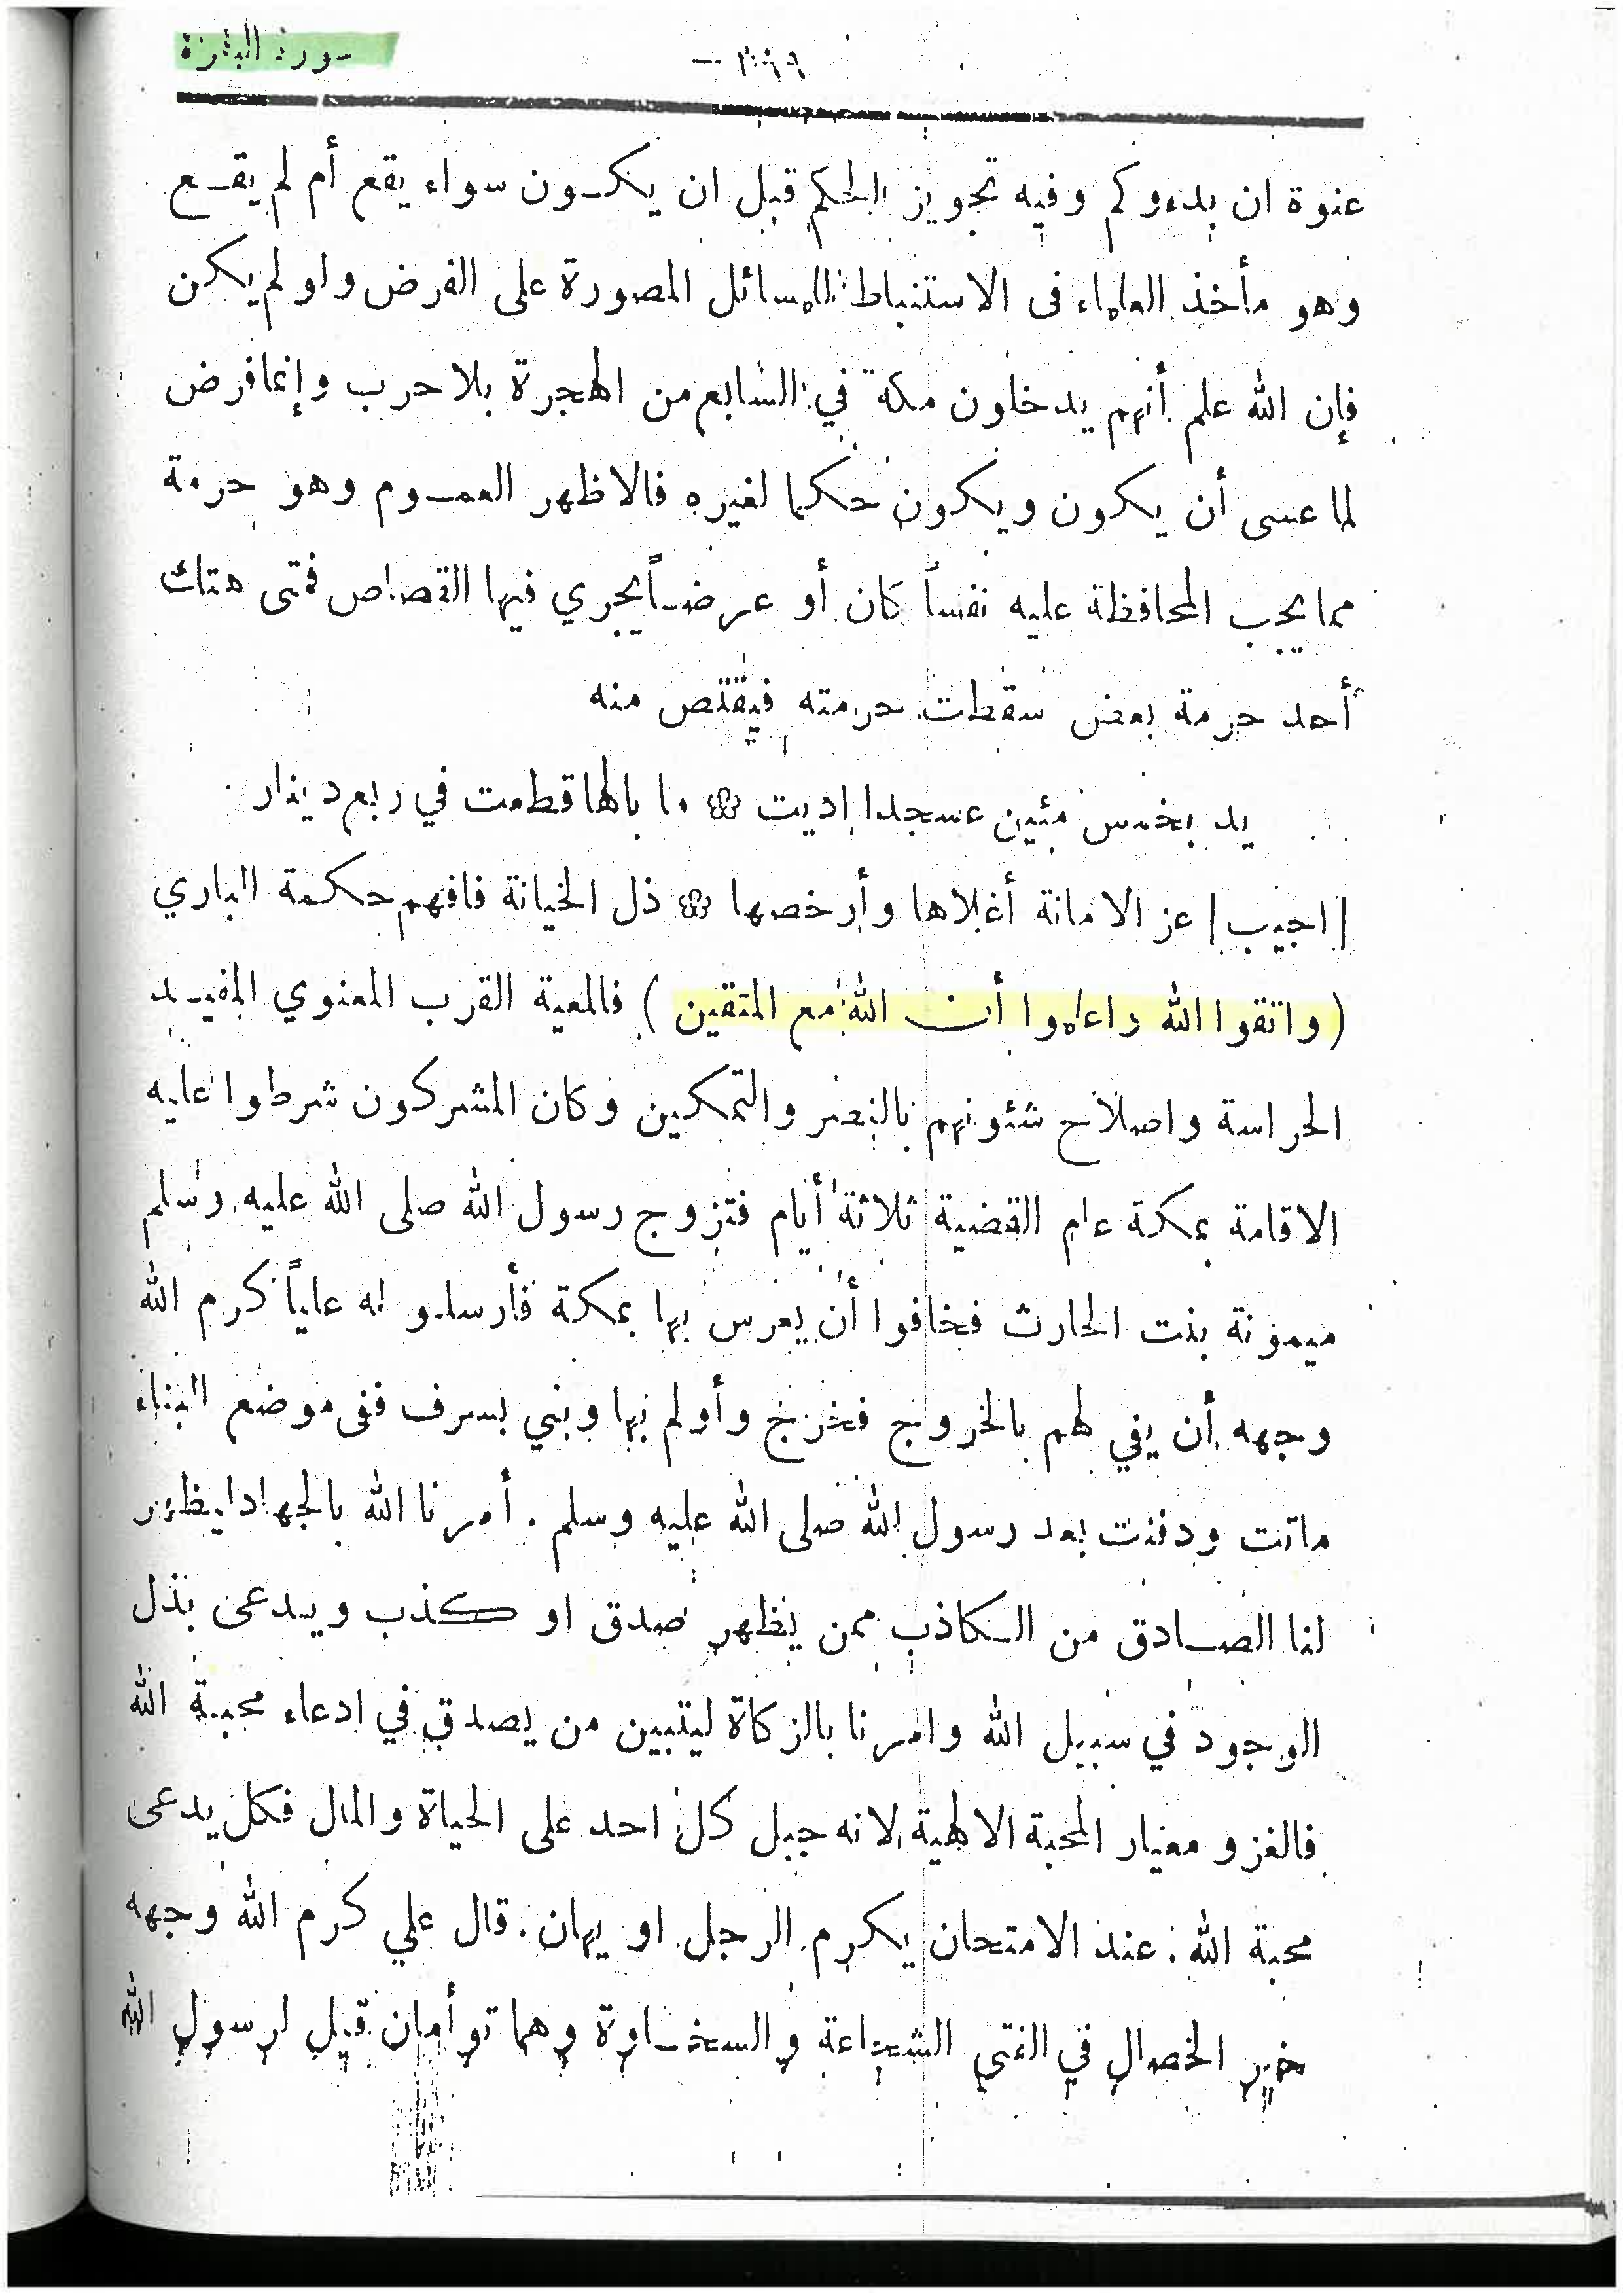 سورة البقرة
عنوة ان بدءوكم وفيه تجويز الحكم قبل ان يكون سواء يقع أم لم يقع
وهو مأخذ العلماء فى الاستنباط للمسائل المصورة على الفرض ولو لم يكن
فإن الله علم أنهم يدخلون مكة في السابع من الهجرة بلا حرب وإنما فرض
لما عسى أن يكون ويكون حكما لغيره فالاظهر العموم وهو حرمة
مما يجب المحافظة عليه نفساً كان أو عرضاً يجري فيها القصاص فمتى هتك
أحد حرمة بعض سقطت حرمته فيقتص منه
يد بخمس مئين عسجدا اديت ۞ ما بالها قطعت في ربع دينار
|اجيب| عز الامانة أغلاها وأرخصها ۞ ذل الخيانة فافهم حكمة الباري
(واتقوا الله واعلموا أن الله مع المتقين) فالمعية القرب المعنوي المفيد
الحراسة واصلاح شئونهم بالنصر والتمكين وكان المشركون شرطوا عليه
الاقامة بمكة عام القضية ثلاثة أيام فتزوج رسول الله صلى الله عليه وسلم
ميمونة بنت الحارث فخافوا أن يعرس بها بمكة فأرسلو له علياً كرم الله
وجهه أن يفي لهم بالخروج فخرج وأولم بها وبني بسرف ففى موضع البناء
ماتت ودفنت بعد رسول الله صلى الله عليه وسلم . أمرنا الله بالجهاد ليظهر
لنا الصادق من الكاذب ممن يظهر صدق او كذب ويدعى بذل
الوجود في سبيل الله وامرنا بالزكاة ليتبين من يصدق في ادعاء محبة الله
فالغزو معيار المحبة الالهية لانه جبل كل احد على الحياة والمال فكل يدعى
محبة الله : عند الامتحان يكرم الرجل او يهان . قال علي كرم الله وجهه
خير الخصال في الفتى الشجاعة والسخاوة وهما توأمان قيل لرسول الله